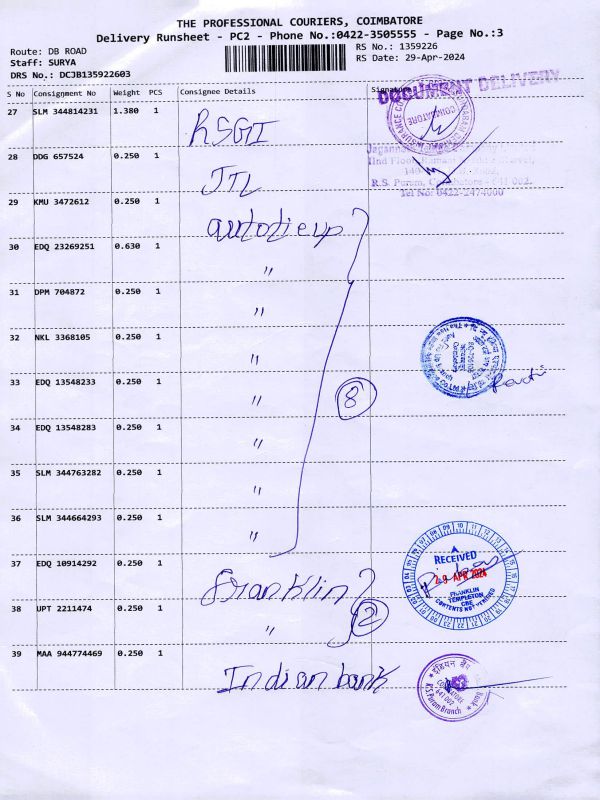 THE PROFESSIONAL COURIERS, COIMBATORE
Delivery Runsheet - PC2 - Phone No.:0422-3505555 - Page No.:3
Route: DB ROAD
RS No.: 1359226
Staff: SURYA
RS Date: 29-Apr-2024
DRS No.: DCJB135922603
S No Consignment No Weight PCS Consignee Details Signature
DOCUMENT DELIVERY
27 SLM 344814231 1.380 1
RSGI
28 DDG 657524 0.250 1
R.S. Puram, Coimbatore - 641 002.
Tel No: 0422-2474000
JTL
29 KMU 3472612 0.250 1
30 EDQ 23269251 0.630 1
"
31 DPM 704872 0.250 1
"
32 NKL 3368105 0.250 1
"
33 EDQ 13548233 0.250 1
"
8
34 EDQ 13548283 0.250 1
"
35 SLM 344763282 0.250 1
"
36 SLM 344664293 0.250 1
"
RECEIVED
29 APR 2024
FRANKLIN
TEMPLETON
CBE
CONTENTS NOT VERIFIED
37 EDQ 10914292 0.250 1
Franklin
38 UPT 2211474 0.250 1
"
2
39 MAA 944774469 0.250 1
Indian bank
इंडियन बैंक
COIMBATORE
641 002
R.S. Puram Branch